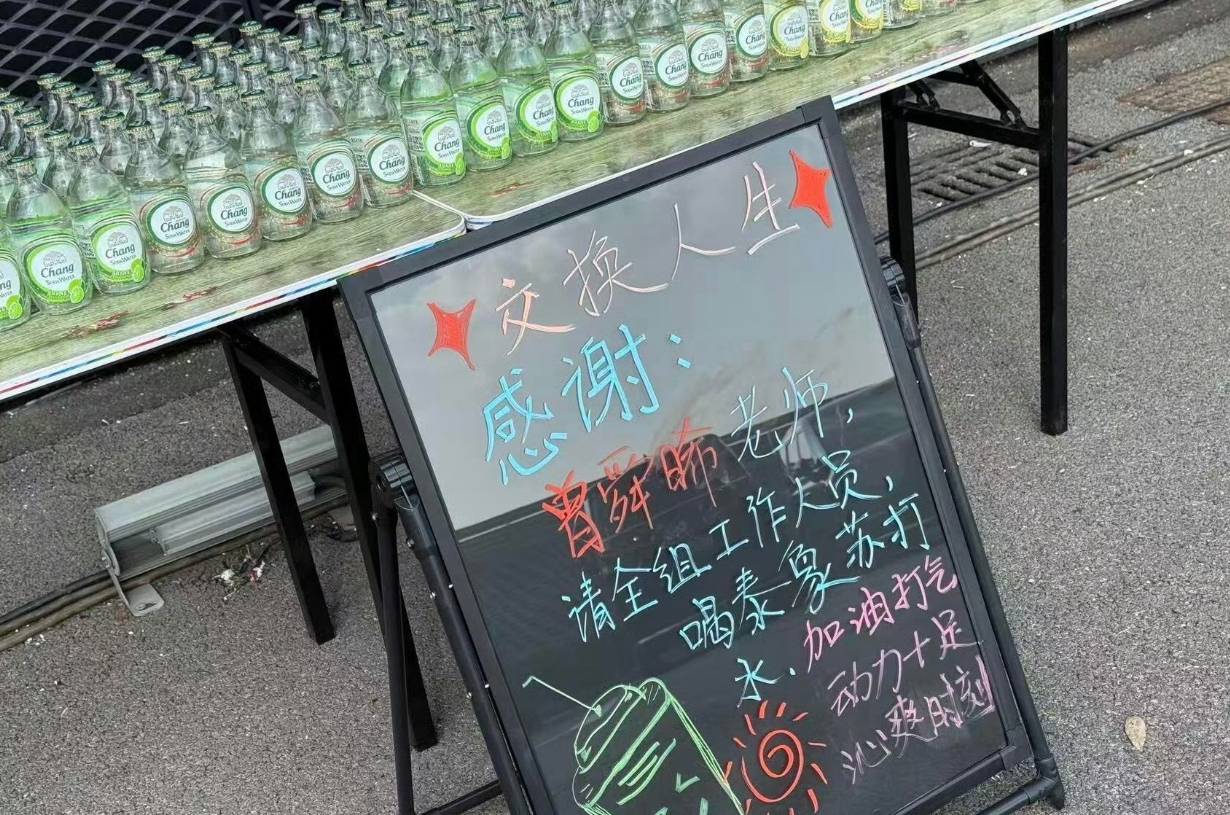 Chang
SODA WATER
交换人生
感谢:
曾舜晞老师,
请全组工作人员,
喝泰象苏打
水.加油打气
动力十足
沁爽时刻